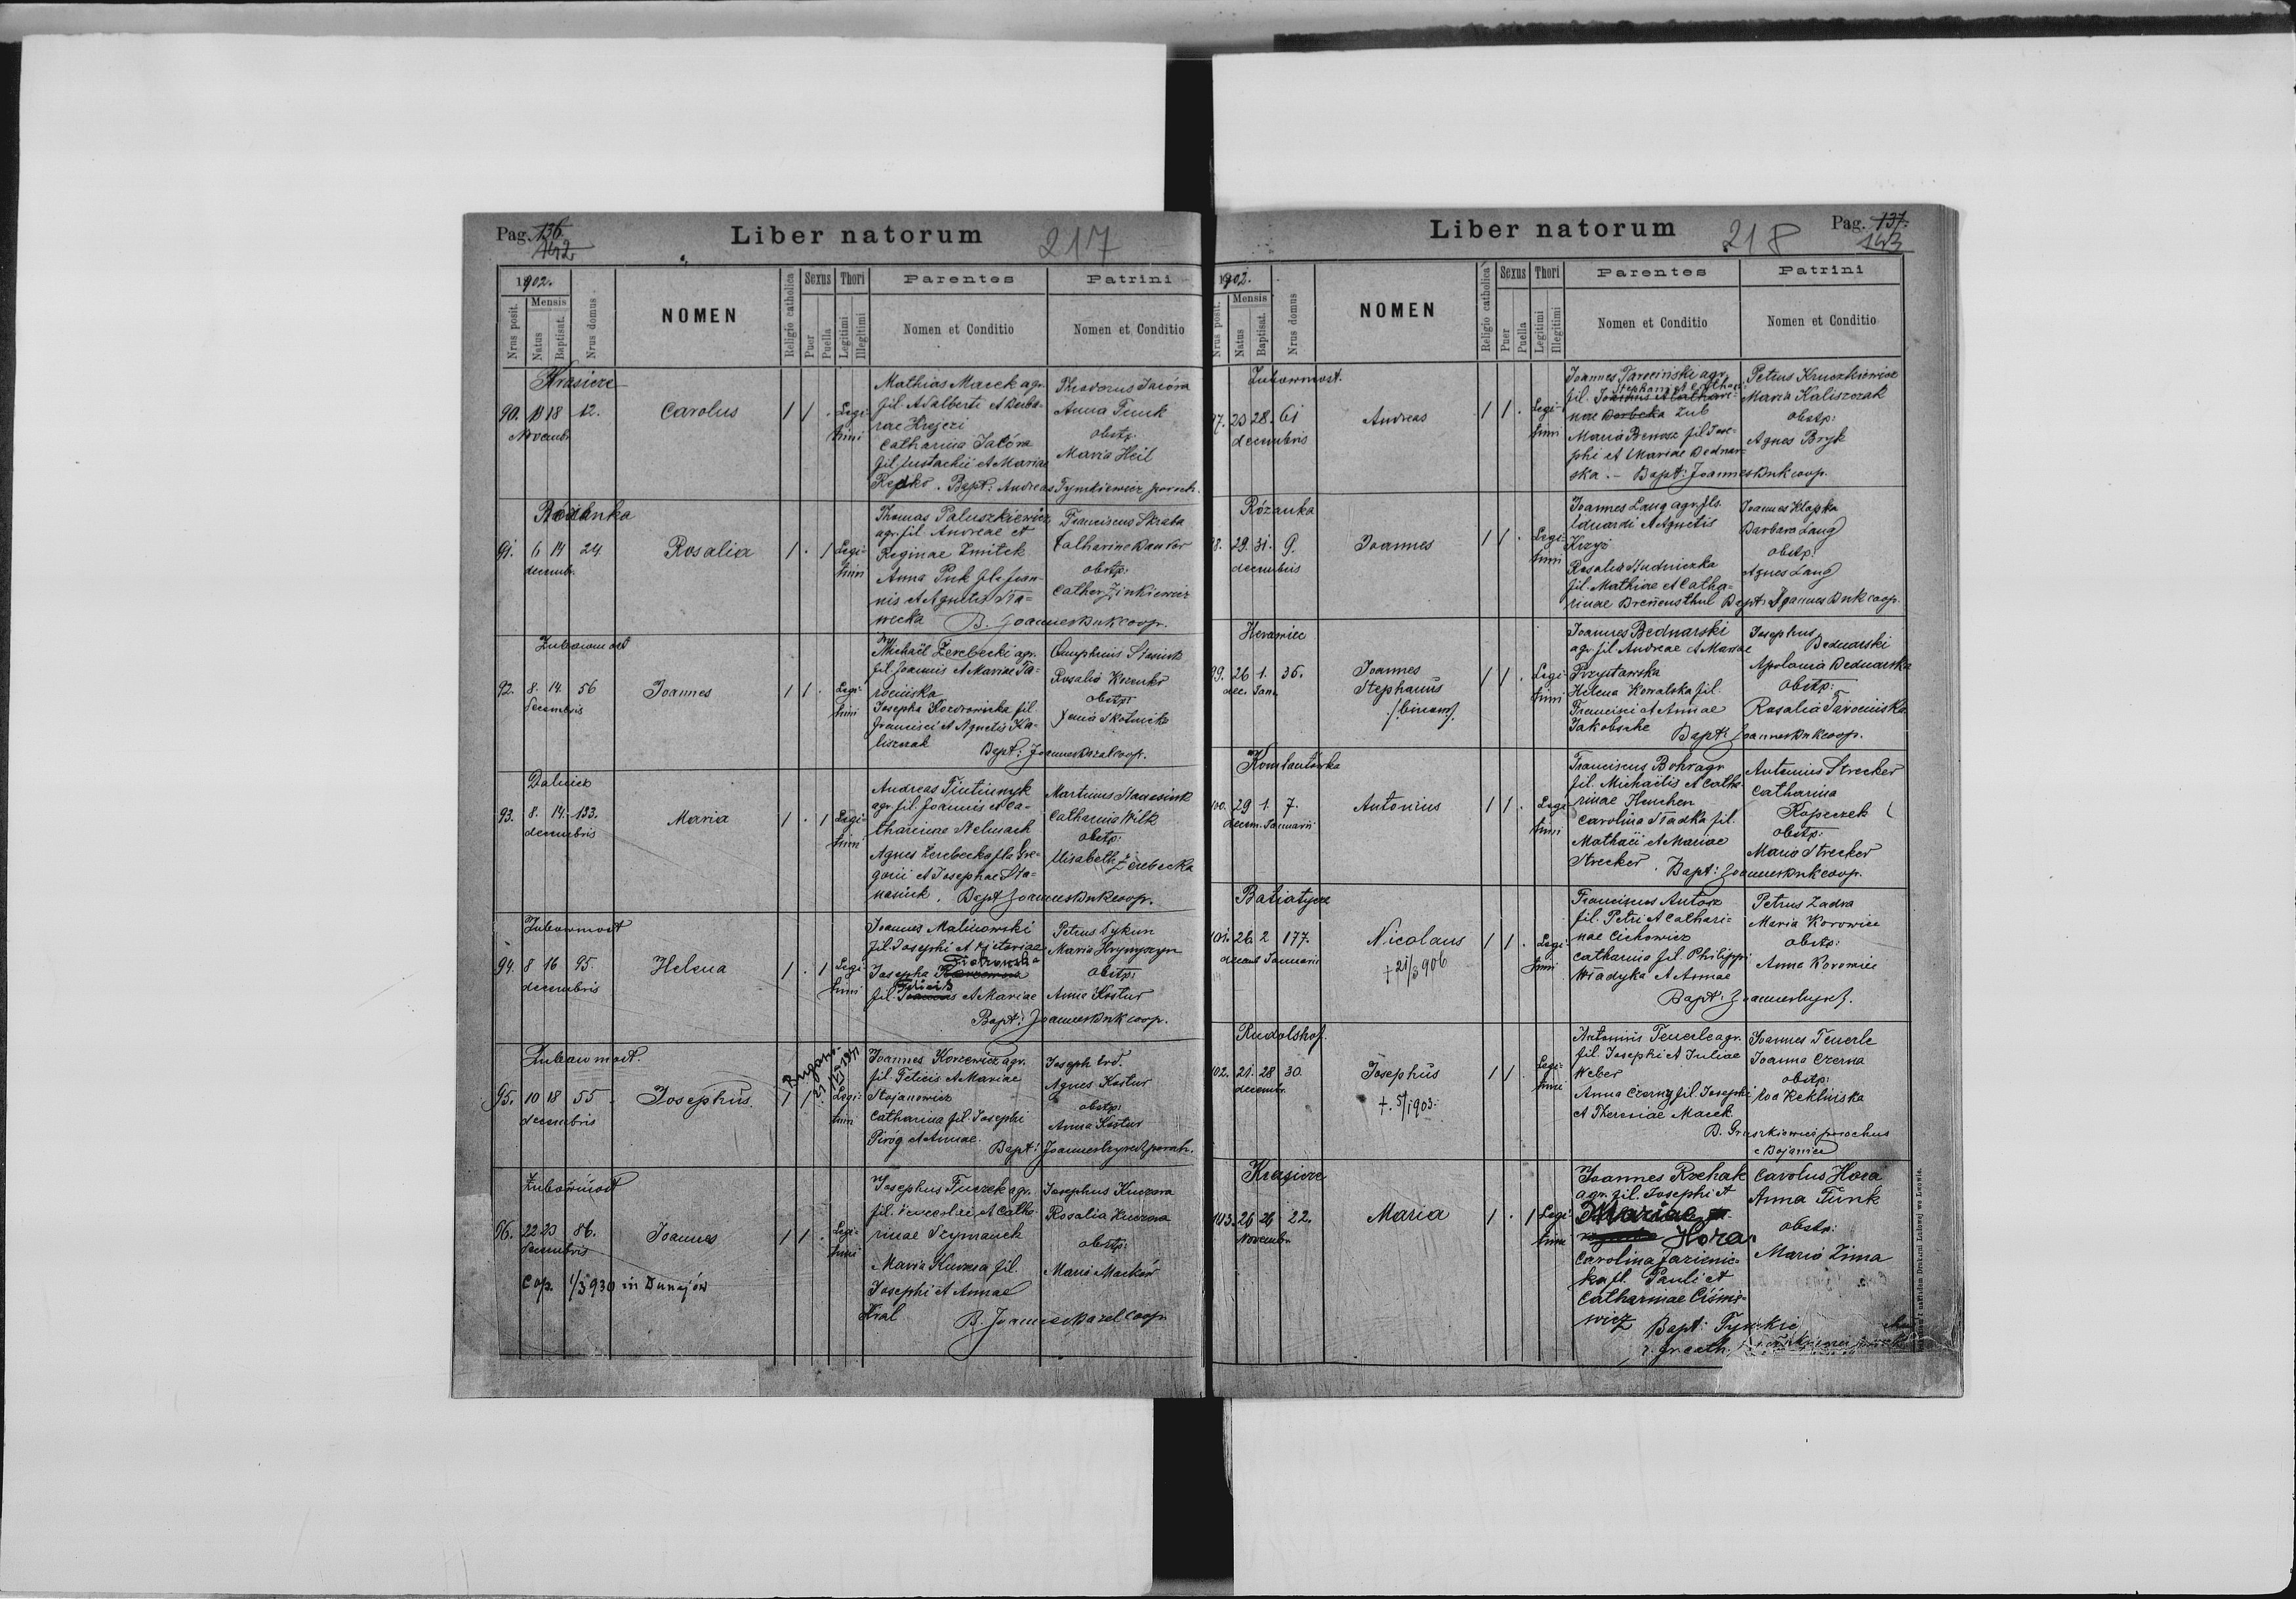 Pag. 136.
142
Liber natorum
217
1902.
Nrus posit.
Mensis
Natus
Baptisat.
Nrus domus
NOMEN
Religio catholica
Sexus
Puer
Puella
Thori
Legitimi
Illegitimi
Parentes
Nomen et Conditio
Patrini
Nomen et Conditio
Krasicze
90. 13 18 12.
Novembr.
Carolus
1 1 .
Legi-
timi
Mathias Macek agr.
fil. Adalberti et Barba-
rae Hrejczi
Catharina Jacóra
fil. Eustachii et Mariae
Redko. Bapt: Andreas Tymkiewicz paroch.
Theodorus Jacóra
Anna Funk
obstp:
Maria Heil
Różanka
91. 6 14 24
decemb.
Rosalia
1 . 1
Legi-
timi
Thomas Paluszkiewicz
agr. fil. Andreae et
Reginae Zmitek
Anna Puk fila Joan-
nis et Agnetis Sta-
wecka B. Joannes Buk coop.
Franciscus Skraba
Catharina Bandor
obstp:
Cather. Zinkiewicz
Zubowmost
92. 8. 14. 56
Decembris
Joannes
1 1 .
Legi-
timi
Michaël Żerebecki agr.
fil. Joannis et Mariae Ta-
rocińska
Josepha Kozdrowicka fil.
Francisci et Agnetis Ka-
liszczak
Bapt: Joannes Bazal coop.
Onuphrius Stasiuk
Rosalia Kozenko
obstp:
Xenia Skotnicka
Dalnicz
93. 8. 14. 133.
decembris
Maria
1 . 1
Legi-
timi
Andreas Tiutiunnyk
agr. fil. Joannis et Ca-
tharinae Stelmach
Agnes Żerebecka fila Gre-
gorii et Josephae Sta-
nasiuk. Bapt Joannes Buk coop.
Martinus Stanasiuk
Catharina Wilk
obstp:
Elisabeth Żerebecka
Zubowmost
94. 8 16 95.
decembris
Helena
1 . 1
Legi-
timi
Joannes Malinowski
fil. Josephi et Victoriae
Piotrowska
Josepha
Felicis
fil. Joannis et Mariae
Bapt: Joannes Buk coop.
Petrus Sykun
Maria Hrynyszyn
obstp:
Anna Kostur
Zubowmost.
95. 10 18 55
decembris
Josephus.
1 1
Legi-
timi
Joannes Korcewicz agr.
fil. Felicis et Mariae
Stojanowicz
Catharina fil. Josephi
Piróg et Annae.
Bapt: Joannes
Joseph Srd.
Agnes Kostur
obstp:
Anna Kostur
Zubowmost
96. 22 23 86.
Decembris
Joannes
Cop. 1/3 930 in Dunajów
1 1 .
Legi-
timi
Josephus Tuczek agr.
fil. Venceslai et Catha-
rinae Szymanek
Maria Kuczera fil.
Josephi et Annae
Kral
B. Joannes Bazel coop.
Josephus Kuczera
Rosalia Kuczera
obstp:
Maria Macków
Liber natorum
218
Pag. 137.
143
1902.
Nrus posit.
Mensis
Natus
Baptisat.
Nrus domus
NOMEN
Religio catholica
Sexus
Puer
Puella
Thori
Legitimi
Illegitimi
Parentes
Nomen et Conditio
Patrini
Nomen et Conditio
Zubowmost.
97. 23 28. 61
decembris
Andreas
1 1 .
Legi-
timi
Joannes Tarociński agr.
Stephani et Catha-
fil. Joannis et Cathari-
nae Zub
Maria Banasz fil. Jose-
phi et Mariae Bednar-
ska. - Bapt: Joannes Buk coop.
Petrus Kruczkiewicz
Maria Kaliszczak
obstp:
Agnes Bryk
Różanka
98. 29. 31. 9.
decembris
Joannes
1 1 .
Legi-
timi
Joannes Lang agr. fils.
Eduardi et Agnetis
Krzyż
Rosalia Hudniczka
fil. Mathiae et Catha-
rinae Brennensthul Bapt: Joannes Buk coop.
Joannes Klapka
Barbara Lang
obstp:
Agnes Lang
Herawiec
99. 26 1. 36.
dec. Janu.
Joannes
Stephanus
/: binom :/
1 1 .
Legi-
timi
Joannes Bednarski
agr. fil. Andreae et Mariae
Przystawska
Helena Kowalska fil.
Francisci et Annae
Jakobsche Bapt: Joannes Buk coop.
Josephus
Bednarski
Apolonia Bednarska
obstp:
Rosalia Tarocińska
Konstantówka
100. 29 1. 7.
decem. Januarii
Antonius
1 1 .
Legi-
timi
Franciscus Bohr agr.
fil. Michaëlis et Catha-
rinae Henchen
Carolina Stadka fil.
Mathaei et Mariae
Strecker. Bapt: Joannes Buk coop.
Antonius Strecker
Catharina
Kopeczek
obstp:
Maria Strecker
Batiatycze
101. 26. 2 177.
decemb Januarii
Nicolaus
+ 21/3 906
1 1 .
Legi-
timi
Franciscus Antosz
fil. Petri et Cathari-
nae Cichowicz
Catharina fil. Philippi
Władyka et Annae
Bapt: Joannes
Petrus Zadra
Maria Korowiec
obstp:
Anna Korowiec
Rudolshof.
102. 21. 28 30.
decembr.
Josephus
+. 5/1 903.
1 1
Legi-
timi
Antonius Feuerle agr.
fil. Josephi et Juliae
Weber
Anna Czerny fil. Josephi
et Theresiae Macek.
B. Gruszkiewicz parochus
e Bojaniec
Joannes Feuerle
Joanna Czerna
obstp:
Eva Keklinska
Krasicze
103. 26 26 22.
Novembr.
Maria
1 . 1
Legi-
timi
Joannes Rzehak
agr. fil. Josephi et
Mariae
Hora.
Carolina Jazienic-
ka fl. Pauli et
Catharinae Ciśmi-
wicz
Bapt:
r. gr. cath.
Carolus Hora
Anna Funk
obstp:
Maria Zima